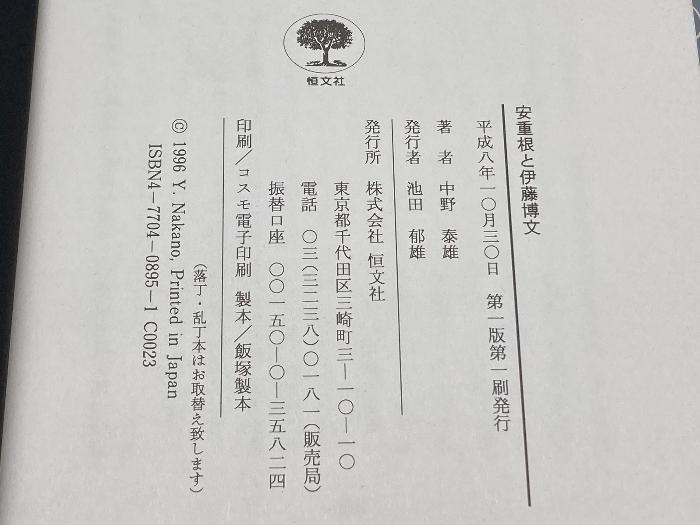 恒文社
安重根と伊藤博文
平成八年一〇月三〇日　第一版第一刷発行
著　者　中野　泰雄
発行者　池田　郁雄
発行所　株式会社　恒文社
東京都千代田区三崎町三―一〇―一〇
電話　〇三(三二三八)〇一八一(販売局)
振替口座　〇〇一五〇―〇―三五八二四
印刷／コスモ電子印刷　製本／飯塚製本
(落丁・乱丁本はお取替え致します)
© 1996 Y. Nakano, Printed in Japan
ISBN4-7704-0895-1 C0023